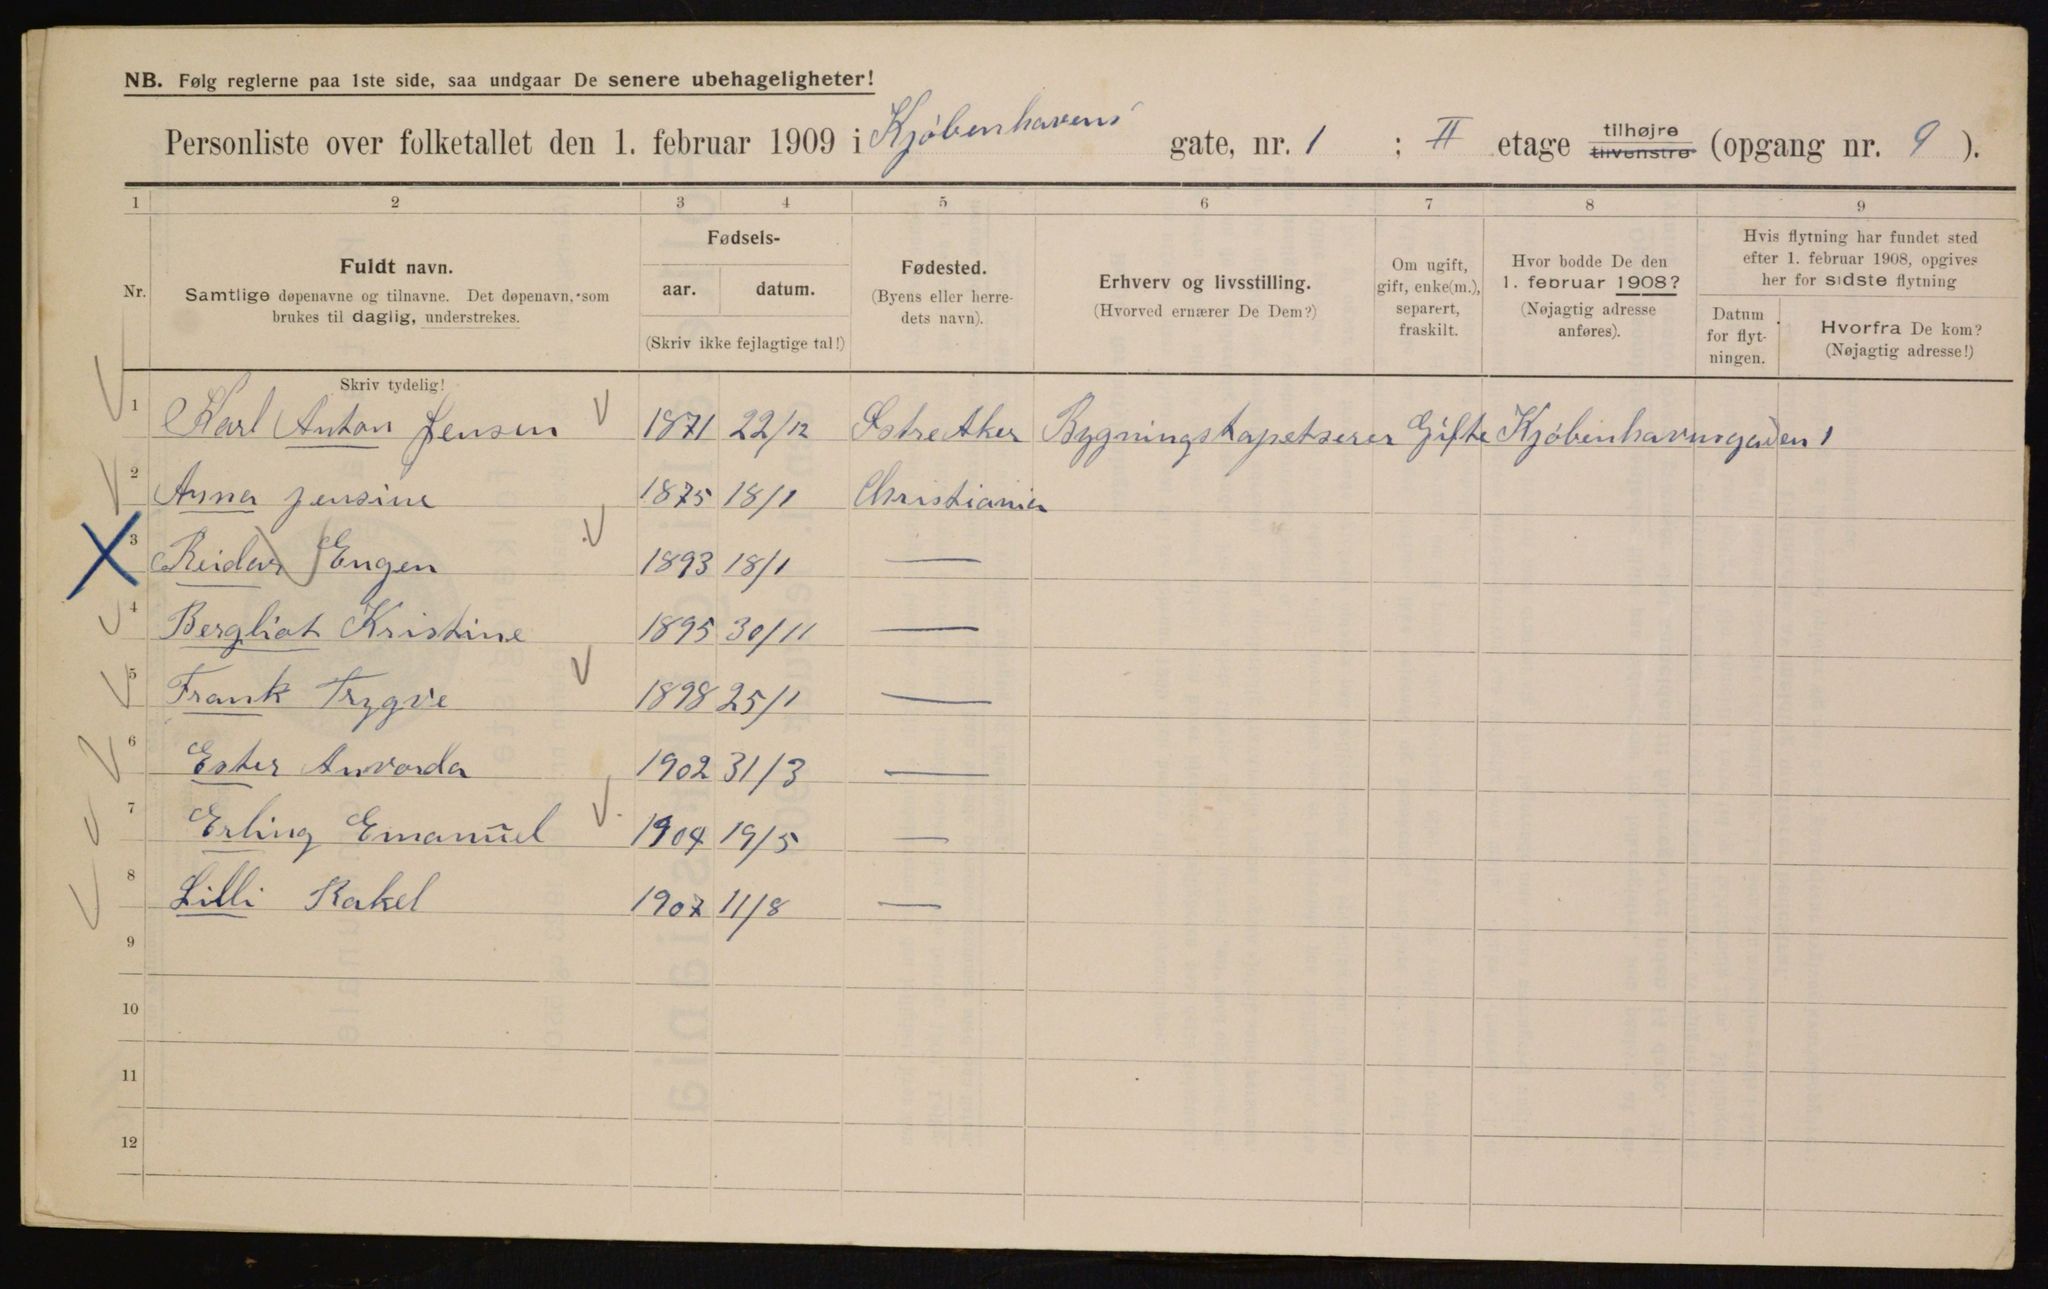 NB. Følg reglerne paa 1ste side, saa undgaar De senere ubehageligheter!
Personliste over folketallet den 1. februar 1909 i Kjøbenhavens' gate, nr. 1 ; II etage tilhøjre tilvenstre (opgang nr. 9 ).
1 2 3 4 5 6 7 8 9
Nr.
Fuldt navn.
Samtlige døpenavne og tilnavne. Det døpenavn, som
brukes til daglig, understrekes.
Fødsels-
aar. datum.
(Skriv ikke fejlagtige tal!)
Fødested.
(Byens eller herre-
dets navn).
Erhverv og livsstilling.
(Hvorved ernærer De Dem?)
Om ugift,
gift, enke(m.),
separert,
fraskilt.
Hvor bodde De den
1. februar 1908?
(Nøjagtig adresse
anføres).
Hvis flytning har fundet sted
efter 1. februar 1908, opgives
her for sidste flytning
Datum
for flyt-
ningen.
Hvorfra De kom?
(Nøjagtig adresse!)
Skriv tydelig!
1 Karl Anton Jensen 1871 22/12 Østre Aker Bygningstapetserer Gifte Kjøbenhavnsgaden 1
2 Anna Jensine 1875 18/1 Christiania
3 Reidar Engen 1893 18/1 —
4 Bergliot Kristine 1895 30/11 —
5 Frank Trygve 1898 25/1 —
6 Ester Anvorda 1902 31/3 —
7 Erling Emanuel 1904 19/5 —
8 Lilli Rakel 1907 11/8 —
9
10
11
12